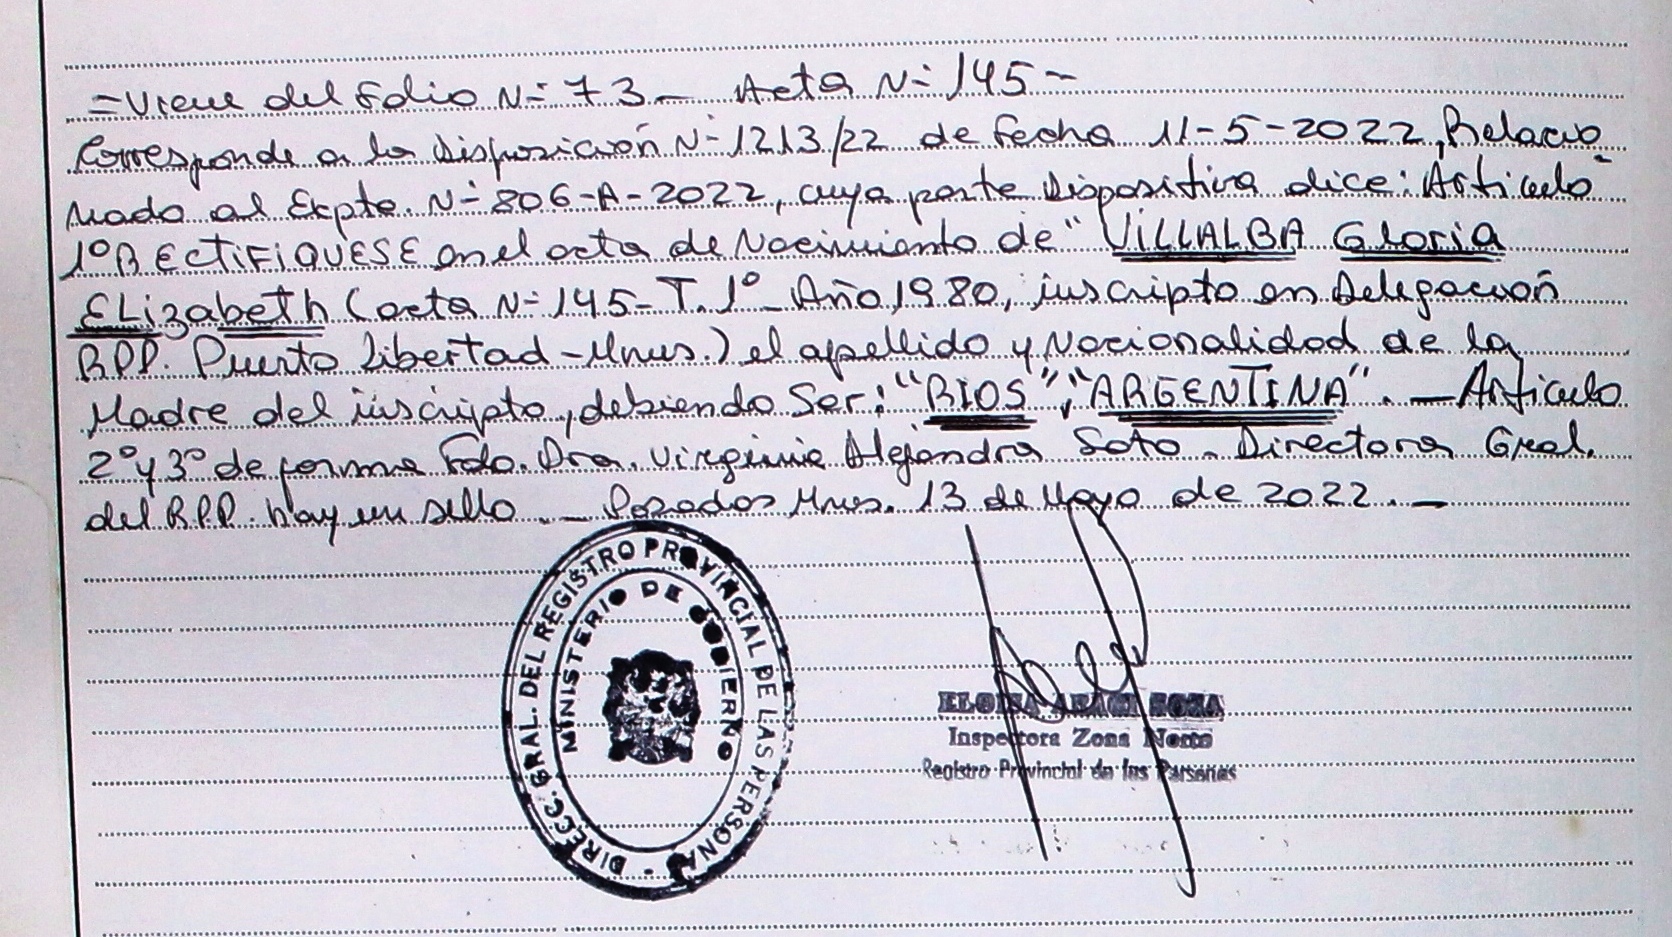 =Viene del Folio N= 73 - Acta N= 145 -
Corresponde a la Disposición N= 1213/22 de Fecha 11-5-2022, Relacio
nado al Expte. N= 806-A-2022, cuya parte Dispositiva dice: Artículo
1º RECTIFIQUESE en el acta de Nacimiento de "VILLALBA Gloria
ELizabeth (acta N= 145- T. 1º - Año 1980, inscripto en Delegación
RPP. Puerto Libertad - Mnes.) el apellido y Nacionalidad de la
Madre del inscripto, debiendo Ser: "RIOS", "ARGENTINA". - Artículo
2º y 3º de forma Fdo. Dra. Virginia Alejandra Soto - Directora Gral.
del R.P.P. hay un sello - Posadas Mnes. 13 de Mayo de 2022. -
DIRECC. GRAL. DEL REGISTRO PROVINCIAL DE LAS PERSONAS -
MINISTERIO DE GOBIERNO
Inspectora Zona Norte
Registro Provincial de las Personas